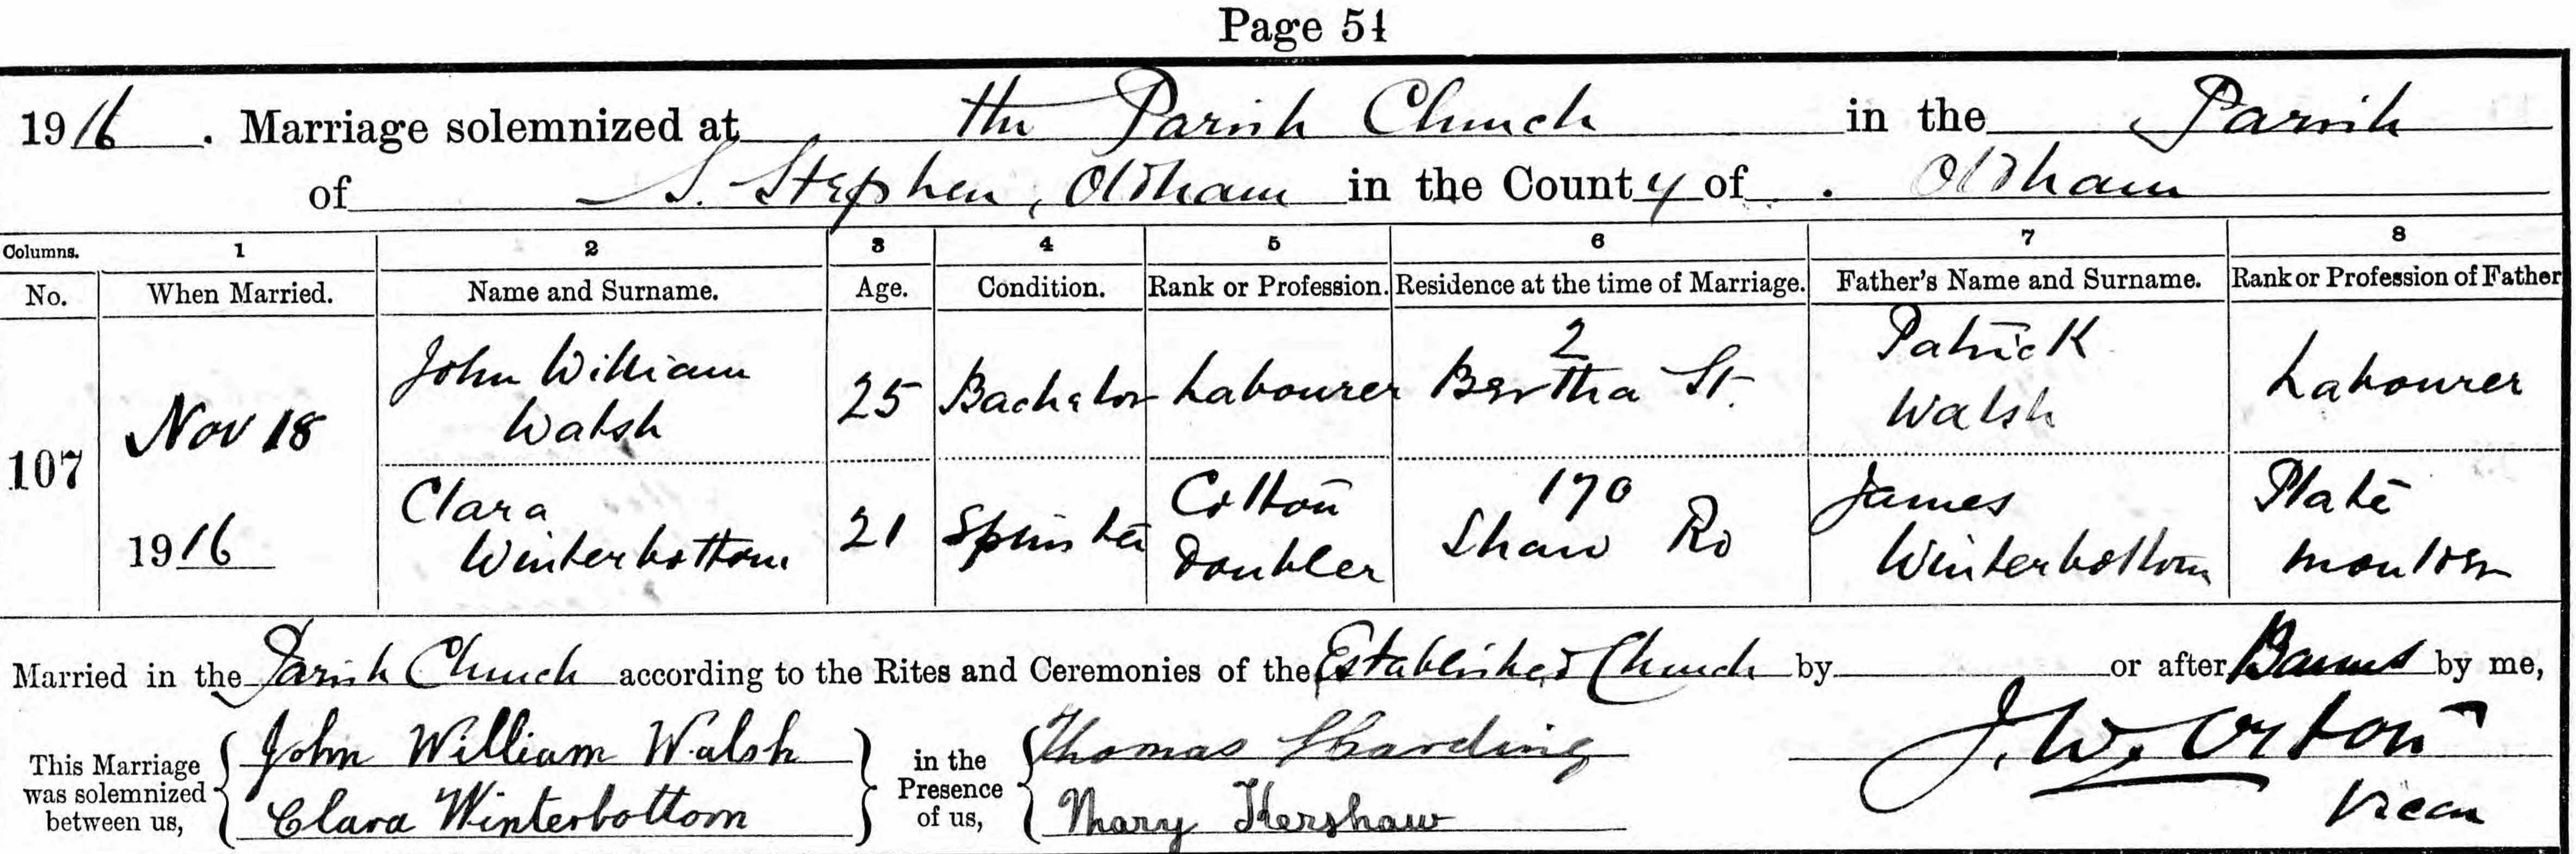 Page 54
1916. Marriage solemnized at the Parish Church in the Parish
of S. Stephen, Oldham in the County of Oldham
Columns. 1 2 3 4 5 6 7 8
No. When Married. Name and Surname. Age. Condition. Rank or Profession. Residence at the time of Marriage. Father's Name and Surname. Rank or Profession of Father
107
Nov 18
1916
John William
Walsh
25 Bachelor Labourer
2
Bertha St.
Patrick
Walsh
Labourer
Clara
Winterbottom
21 Spinster
Cotton
Doubler
170
Shaw Rd
James
Winterbottom
Plate
Married in the Parish Church according to the Rites and Ceremonies of the Established Church by or after Banns by me,
This Marriage
was solemnized
between us,
John William Walsh
Clara Winterbottom
in the
Presence
of us,
Thomas Harding
Mary Kershaw
J. W. Orton
Vicar